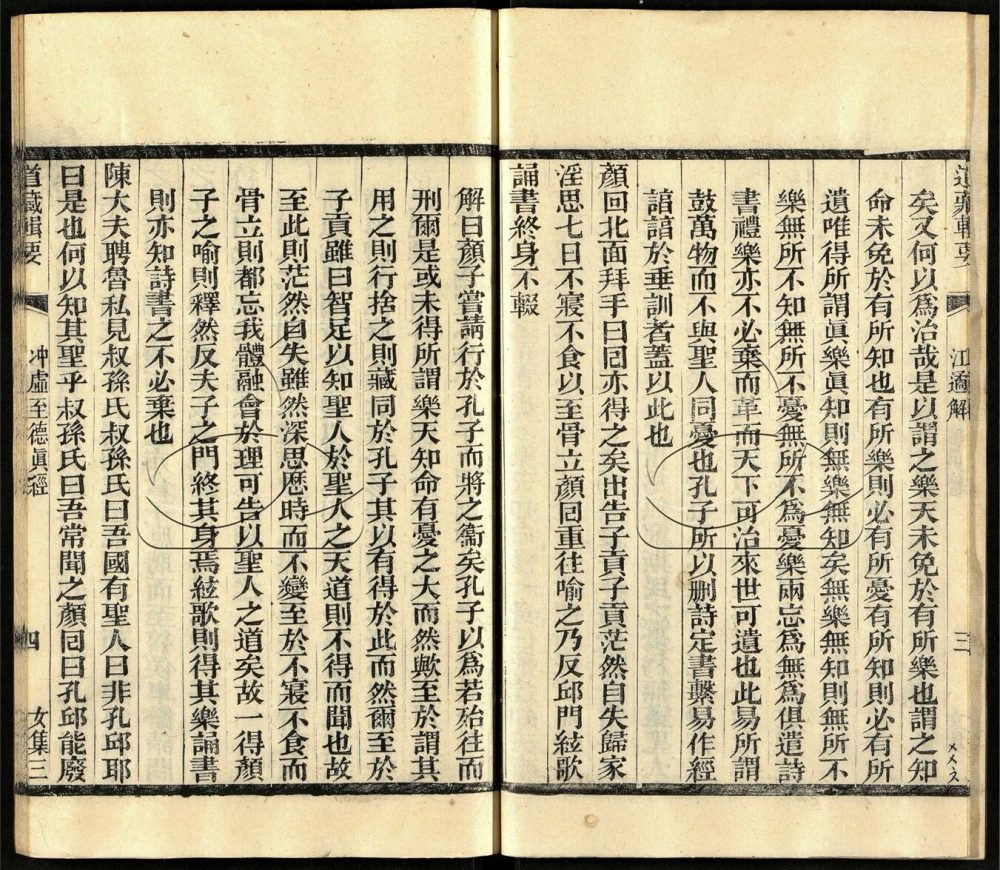 道藏輯要
江遹解
三
矣又何以爲治哉是以謂之樂天未免於有所樂也謂之知
命未免於有所知也有所樂則必有所憂有所知則必有所
遺唯得所謂眞樂眞知則無樂無知矣無樂無知則無所不
樂無所不知無所不憂無所不爲憂樂兩忘爲無爲俱遣詩
書禮樂亦不必棄而革而天下可治來世可遺也此易所謂
鼓萬物而不與聖人同憂也孔子所以删詩定書繫易作經
諳諳於垂訓者蓋以此也
顏回北面拜手曰回亦得之矣出告子貢子貢茫然自失歸家
淫思七日不寢不食以至骨立顏回重往喻之乃反邱門絃歌
誦書終身不輟
解曰顏子嘗請行於孔子而將之衞矣孔子以爲若殆往而
刑爾是或未得所謂樂天知命有憂之大而然歟至於謂其
用之則行捨之則藏同於孔子其以有得於此而然爾至於
子貢雖曰智足以知聖人於聖人之天道則不得而聞也故
至此則茫然自失雖然深思歷時而不變至於不寢不食而
骨立則都忘我體融會於理可告以聖人之道矣故一得顏
子之喻則釋然反夫子之門終其身焉絃歌則得其樂誦書
則亦知詩書之不必棄也
陳大夫聘魯私見叔孫氏叔孫氏曰吾國有聖人曰非孔邱耶
曰是也何以知其聖乎叔孫氏曰吾常聞之顏回曰孔邱能廢
道藏輯要
冲虛至德眞經
四
女集三